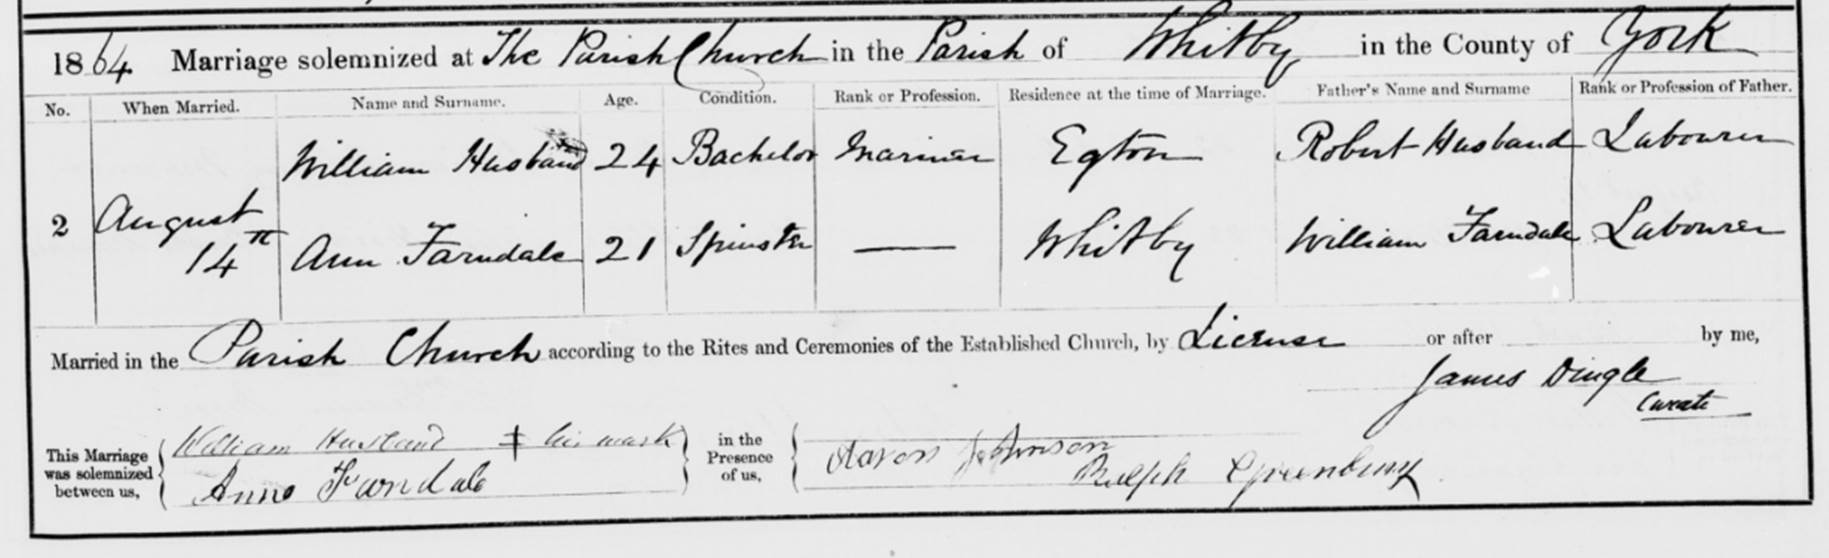 1864 Marriage solemnized at The Parish Church in the Parish of Whitby in the County of York
No. When Married. Name and Surname. Age. Condition. Rank or Profession. Residence at the time of Marriage. Father's Name and Surname Rank or Profession of Father.
William Husband 24 Bachelor Mariner Egton Robert Husband Labourer
2 August 14th Ann Farndale 21 Spinster — Whitby William Farndale Labourer
Married in the Parish Church according to the Rites and Ceremonies of the Established Church, by License or after by me,
James Dingle
Curate
This Marriage was solemnized between us,
William Husband ‡ his mark
Anne Farndale
in the Presence of us,
Aaron Johnson
Ralph Greenbury